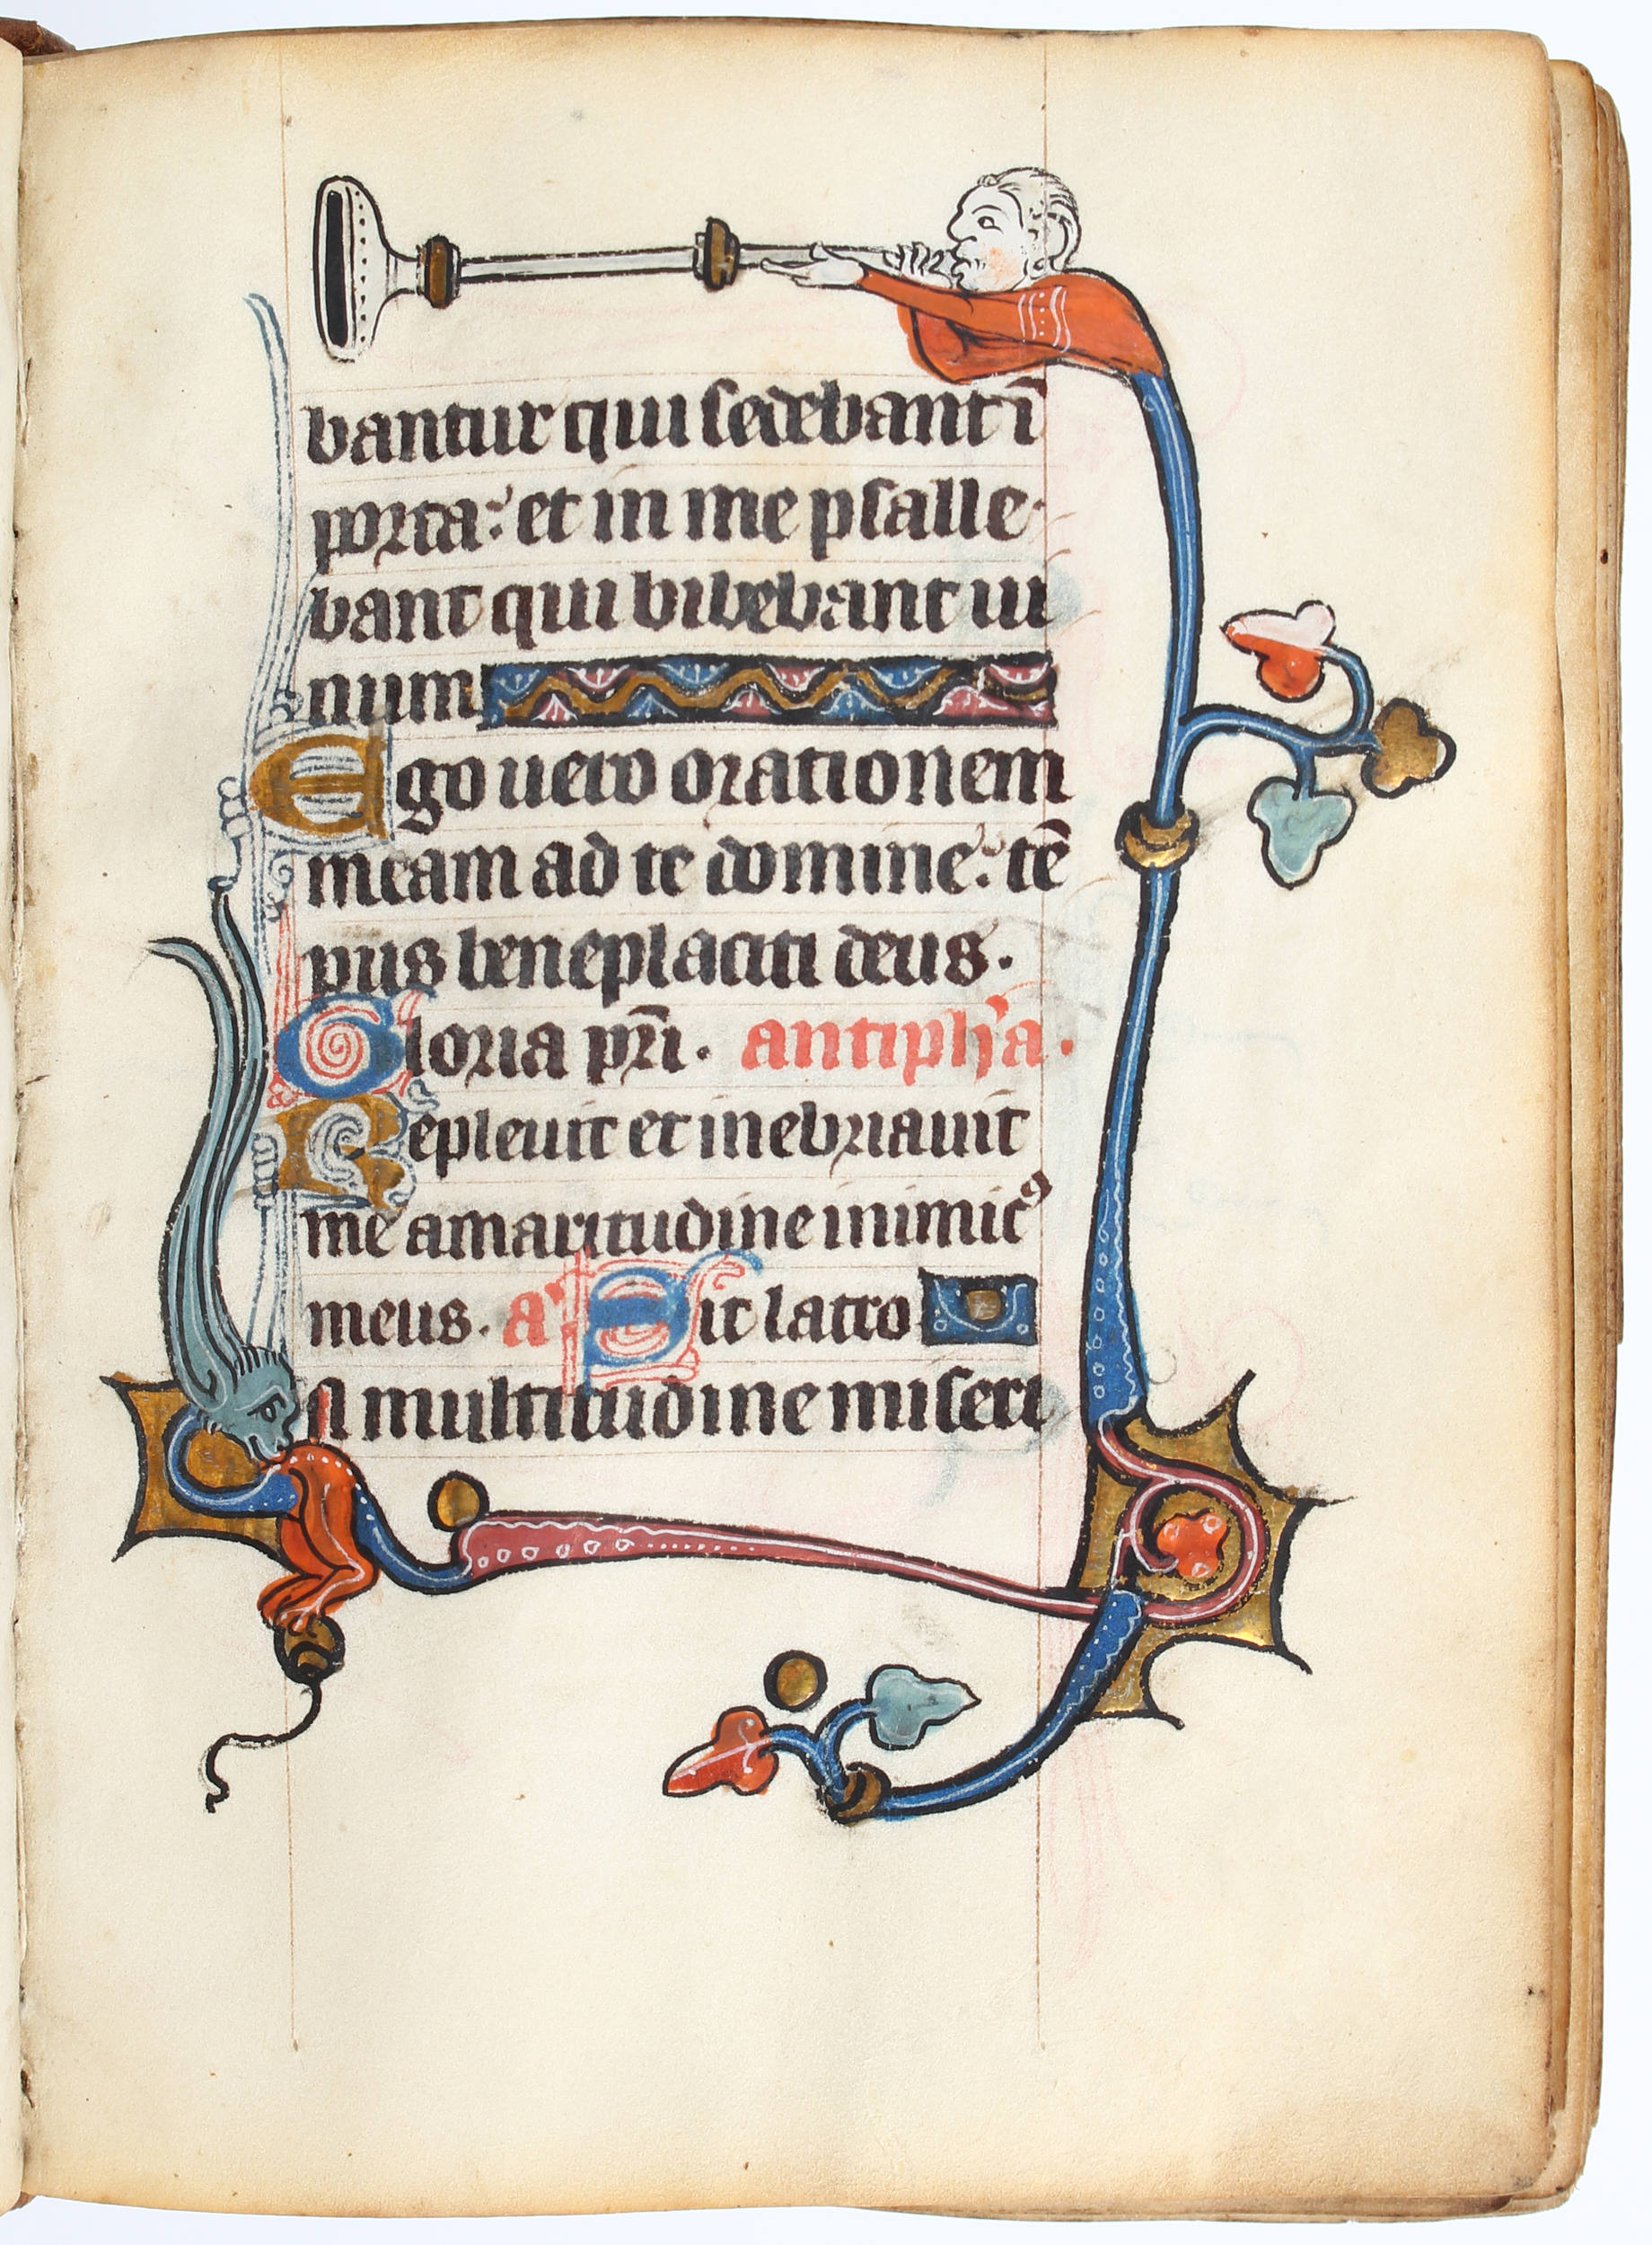 bantur qui sedebant ī
porta: et in me psalle
bant qui bibebant ui
num
Ego uero orationem
meam ad te domine: tē
pus beneplaciti deus.
Gloria pr̄i. antiph'a.
Repleuit et inebriauit
me amaritudine inimicꝰ
meus. a' Ait latro
In multitudine miseri